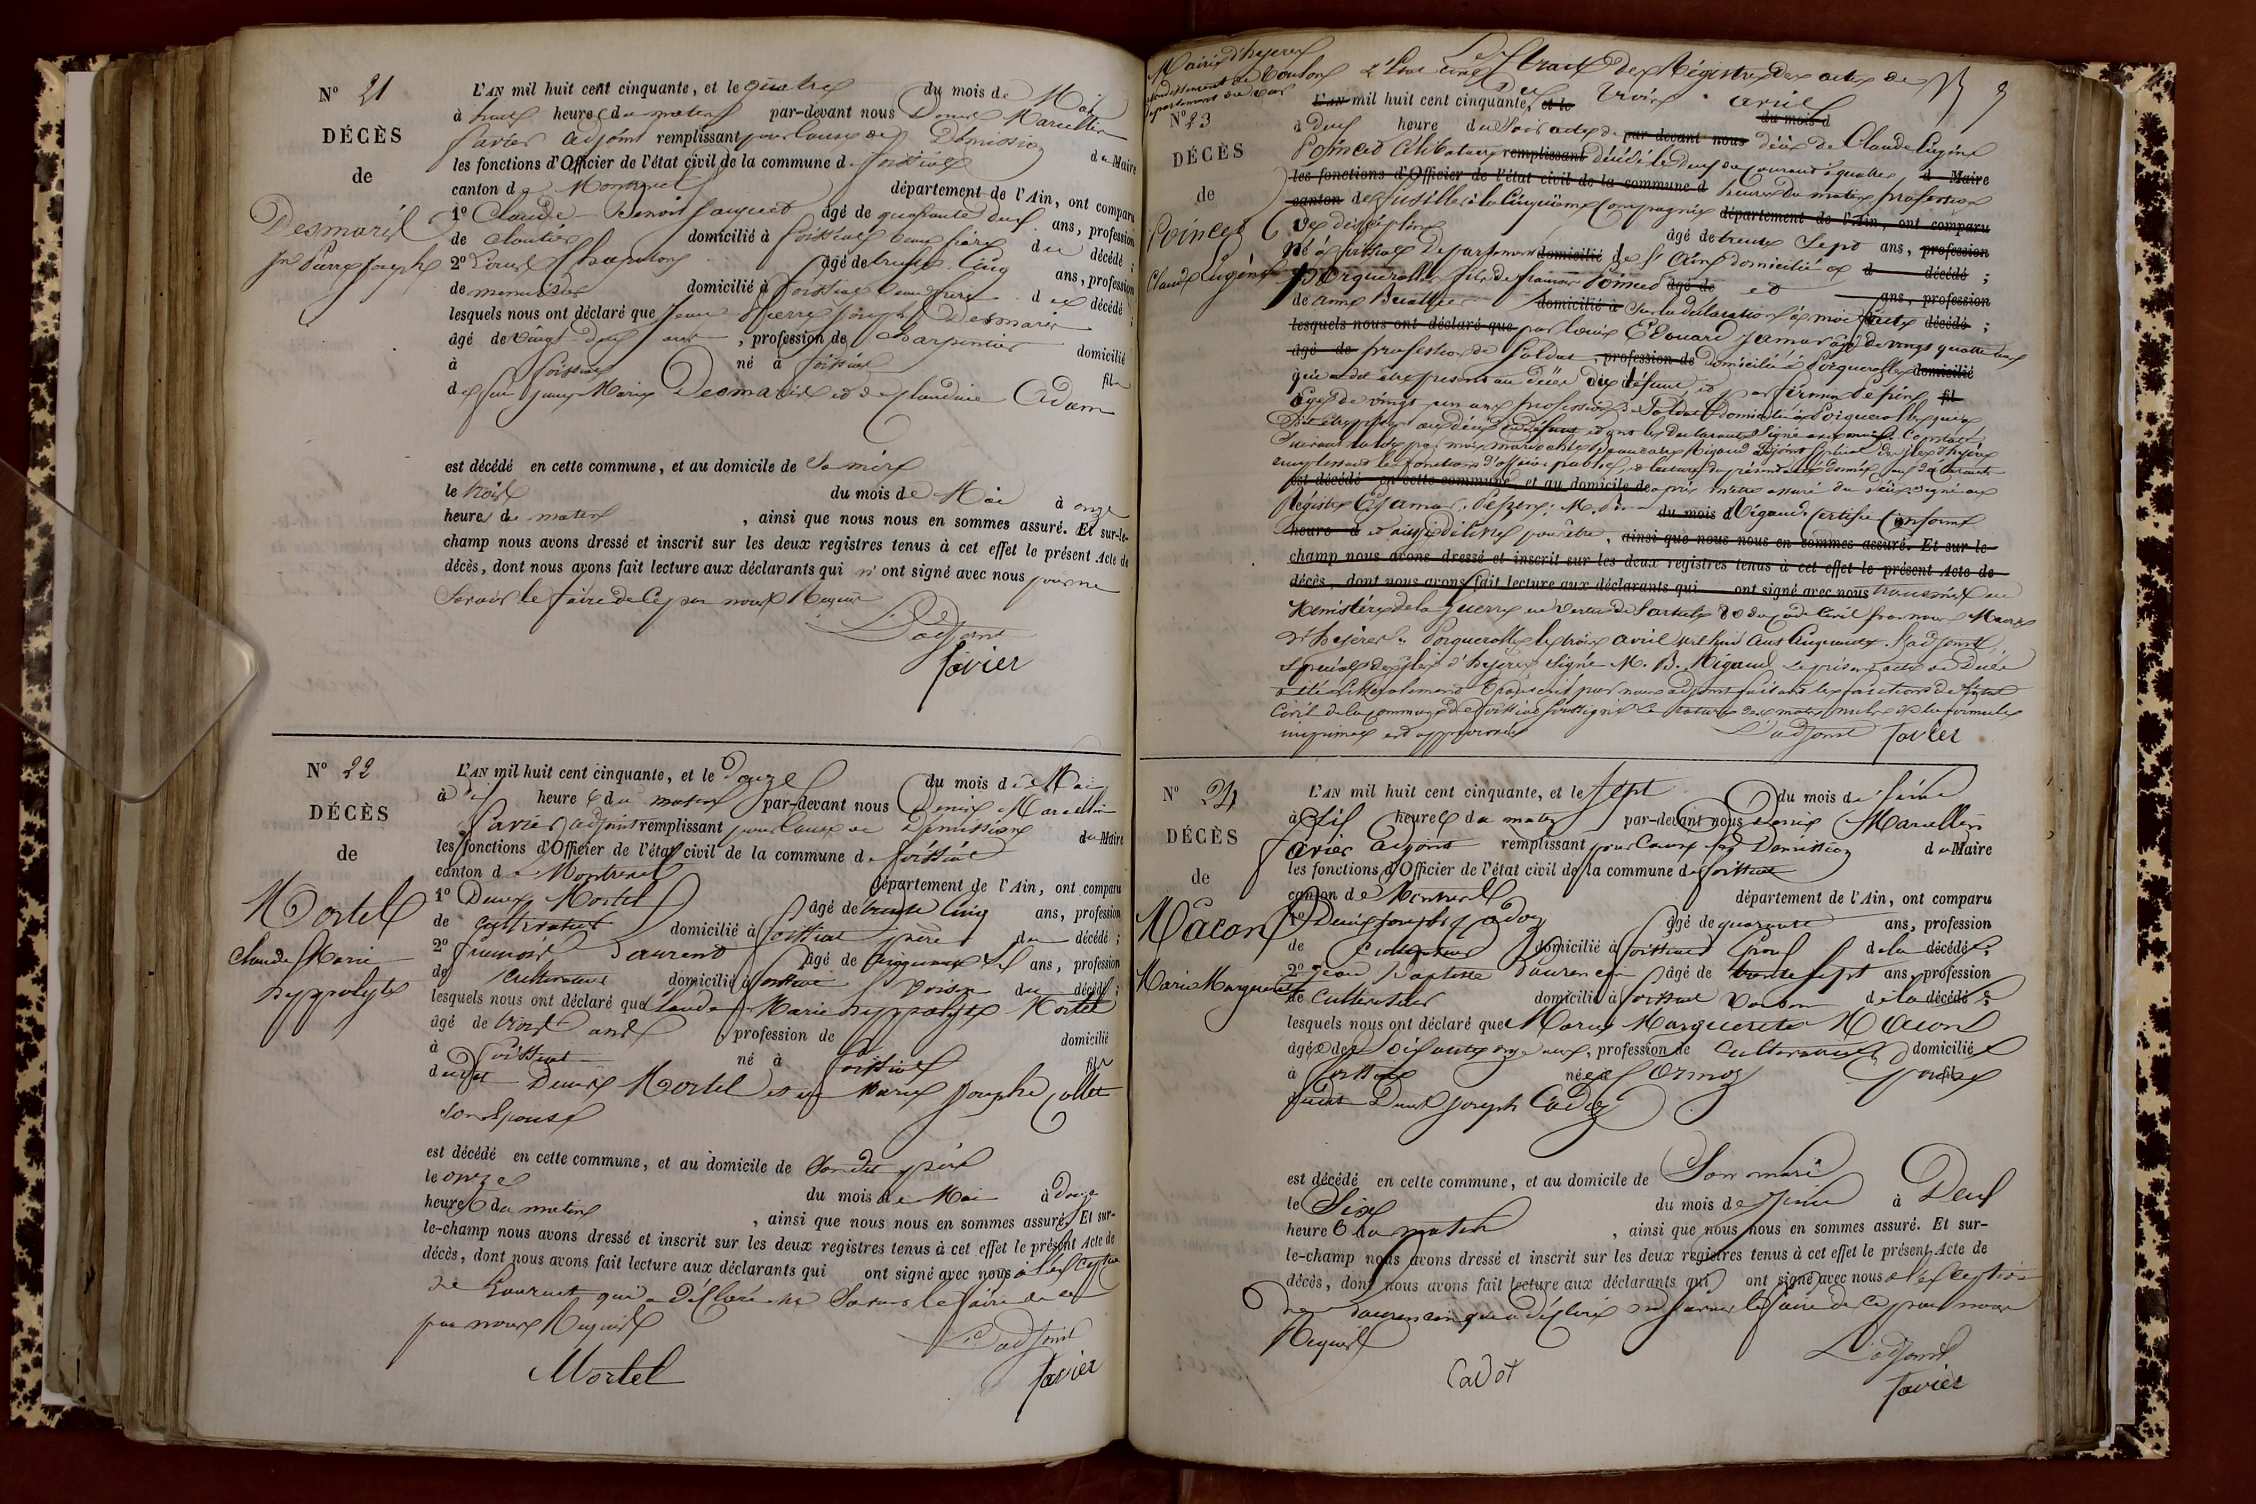 N° 21
DÉCÈS
de
Desmaris
Jn Pierre Joseph
L'AN mil huit cent cinquante, et le quatre du mois de Mai
à huit heures du matin par-devant nous Denis Marcellin
Favier adjoint remplissant pour cause de Démission du Maire
les fonctions d'Officier de l'état civil de la commune de foissiat
canton de Montrevel département de l'Ain, ont comparu
1° Claude Benoit Janquet âgé de quarante deux ans, profession
de cloutier domicilié à foissiat beau frère du décédé ;
2° Louis Chapuis âgé de trente cinq ans, profession
de menuisier domicilié à foissiat beau frère du décédé ;
lesquels nous ont déclaré que Jean Pierre Joseph Desmaris
âgé de vingt deux ans, profession de charpentier domicilié
à foissiat né à foissiat fils
de feu Jean Marie Desmaris et de Claudine Adam
est décédé en cette commune, et au domicile de Sa mère
le trois du mois de Mai à onze
heures du matin, ainsi que nous nous en sommes assuré. Et sur-le-
champ nous avons dressé et inscrit sur les deux registres tenus à cet effet le présent Acte de
décès, dont nous avons fait lecture aux déclarants qui n'ont signé avec nous pour ne
Savoir le faire de ce par nous Requis
L'adjoint
favier
N° 22
DÉCÈS
de
Mortel
Claude Marie
hyppolyte
L'AN mil huit cent cinquante, et le Douze du mois de Mai
à dix heures du matin par-devant nous Denis Marcellin
favier adjoint remplissant pour cause de Démission du Maire
les fonctions d'Officier de l'état civil de la commune de foissiat
canton de Montrevel département de l'Ain, ont comparu
1° Denis Mortel âgé de trente cinq ans, profession
de cultivateur domicilié à foissiat père du décédé ;
2° françois Laurent âgé de cinquante six ans, profession
de cultivateur domicilié à foissiat voisin du décédé ;
lesquels nous ont déclaré que Claude Marie hyppolyte Mortel
âgé de trois ans profession de domicilié
à foissiat né à foissiat fils
dudit Denis Mortel et de Marie Josephe Collet
son Epouse
est décédé en cette commune, et au domicile de Son dit père
le onze du mois de Mai à Douze
heures du matin, ainsi que nous nous en sommes assuré. Et sur-
le-champ nous avons dressé et inscrit sur les deux registres tenus à cet effet le présent Acte de
décès, dont nous avons fait lecture aux déclarants qui ont signé avec nous à l'exception
de Laurent qui a déclaré ne Savoir le faire de ce
par nous Requis
L'adjoint
Mortel favier
Mairie d'hyeres
arrondissement de Toulon
département du var
Extrait des Régistres des actes de
l'état civil
N° 23
DÉCÈS
de
Poincet
Claude Eugène
L'AN mil huit cent cinquante, et le Du trois avril du mois d
à Deux heure du Soir acte de par devant nous décès de Claude Eugène
Poincet Célibataire remplissant décédé le deux du courant à quatre d Maire
les fonctions d'Officier de l'état civil de la commune d heures du matin profession
canton de fusilier à la cinquième Compagnie département de l'Ain, ont comparu
de discipline âgé de trente Sept ans, profession
né à foissiat departement domicilié de l'Ain domicilié à d décédé ;
Porquerolles fils de françois Poincet âgé de et ans, profession
de anne domicilié à Sur la déclaration à moi faite décédé ;
lesquels nous ont déclaré que par Louis Edouard Jamar âgé de vingt quatre ans
âgé de profession de Soldat, profession de Domicilié à Porquerolles domicilié
qui a dit être present au décès du défunt, et par firmin fil
âgé de vingt un ans profession de Soldat domicilié à Porquerolles qui a
dit être present au décès du défunt et ont les déclarants Signé avec moi. Constaté
Suivant la loi par moi Rigaud adjoint Spécial des iles d'hyères
remplissant les fonctions d'officier public,
est décédé en cette commune, et au domicile de après m'être assuré du décès signé au
Régistre du mois d Rigaud Certifié Conforme
heure d et aussi délivré pour être, ainsi que nous nous en sommes assuré. Et sur le
champ nous avons dressé et inscrit sur les deux registres tenus à cet effet le présent Acte de
décès, dont nous avons fait lecture aux déclarants qui ont signé avec nous transmis au
Ministère de la guerre en vertu de l'article 80 du code Civil par nous Maire
d'hyères. Porquerolles le trois avril mil huit Cent Cinquante. L'adjoint
Spécial des iles d'hyeres Signé M. B. Rigaud Le présent acte de Décès
a été littéralement transcrit par nous adjoint faisant les fonctions de l'état
Civil de la commune de foissiat Soussigné La rature des mots nuls de la formule
imprimée est approuvée
L'adjoint favier
N° 24
DÉCÈS
de
Mâcon
Marie Marguerite
L'AN mil huit cent cinquante, et le Sept du mois de Juin
à Six heures du matin par-devant nous Denis Marcellin
favier adjoint remplissant pour cause de Démission du Maire
les fonctions d'Officier de l'état civil de la commune de foissiat
canton de Montrevel département de l'Ain, ont comparu
1° Denis Joseph Cadoz âgé de quarante ans, profession
de Cultivateur domicilié à foissiat Epoux de la décédée ;
2° Jean Baptiste Laurencin âgé de trente sept ans, profession
de Cultivateur domicilié à foissiat Voisin de la décédée ;
lesquels nous ont déclaré que Marie Marguerite Mâcon
âgée de Soixante onze ans, profession de Cultivatrice domiciliée
à foissiat née à Cormoz fil
dudit Denis Joseph Cadoz
est décédé en cette commune, et au domicile de Son mari
le Six du mois de Juin à Deux
heures du matin, ainsi que nous nous en sommes assuré. Et sur-
le-champ nous avons dressé et inscrit sur les deux registres tenus à cet effet le présent Acte de
décès, dont nous avons fait lecture aux déclarants qui ont signé avec nous à l'exception
de Laurencin qui a déclaré ne Savoir le faire de ce par nous
Requis
L'adjoint
Cadot favier